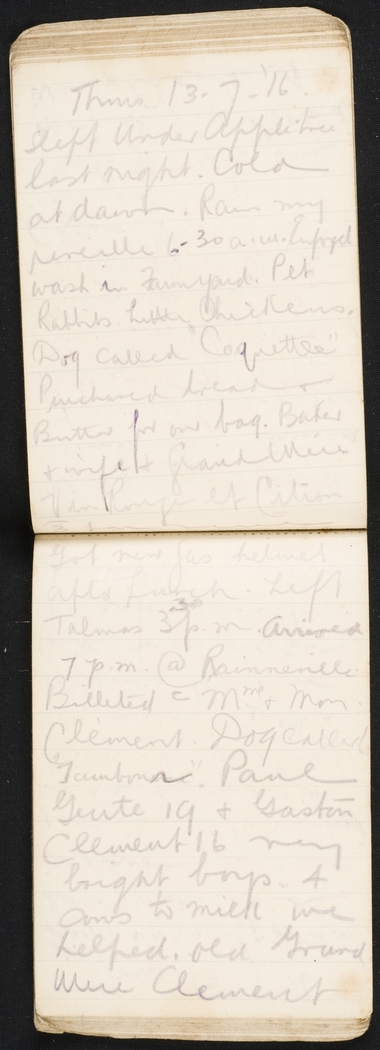 Thurs 13-7-'16.
Slept Under Appletree
last night. Cold
at dawn. Rain my
reveille 6-30 a.m. Enjoyed
wash in Farmyard. Pet
Rabbits Little Chickens.
Dog called "Coquette"
Purchased bread &
Butter for our bag. Baker
& wife & Grand Mère
Vin Rouge et Citron
Got new gas helmet
after Lunch. Left
Talmas 3-30 p.m. arrived
7 p.m. @ Rainneville.
Billeted c Mme & Mon
Clement. Dog called
"Tambour". Paul
19 & Gaston
Clement 16 very
bright boys. 4
cows to milk we
helped. old Grand
Mere Clement